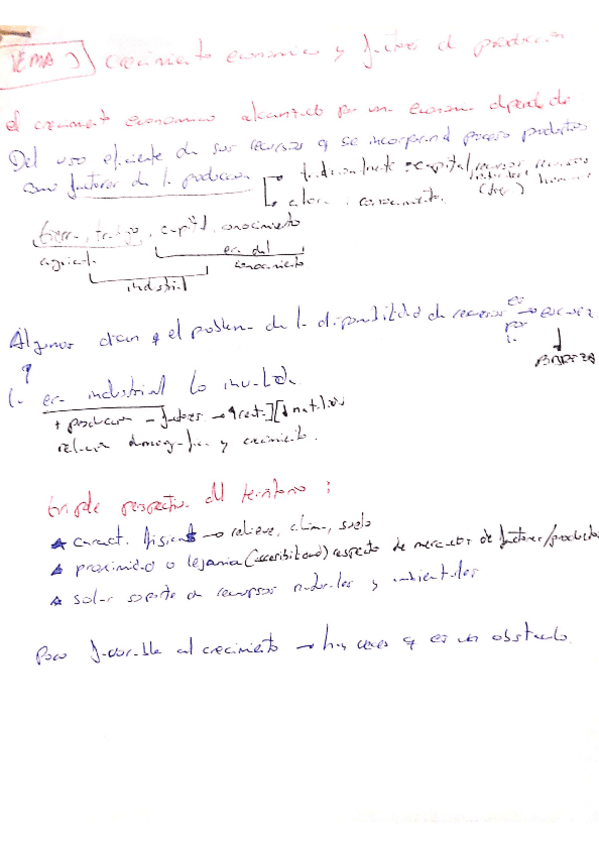 TEMA crecimiento economico y factores de produccion
el crecimiento economico alcanzado por una economia depende
Del uso eficiente de sus recursos q se incorporan proceso productivo
como factores de la produccion tradicionalmente: capital, recursos recursos
ahora: conocimiento. humanos
tierra, trabajo, capital, conocimiento
agricola era del
conocimiento
industrial
Algunos dicen q el problema de la disponibilidad de recursos es → escasez
por
la
q
la era industrial lo inunda
+ produccion - factores →
relacion demografica y crecimiento.
triple perspectiva del territorio:
caract. fisicas → relieve, clima, suelo
proximidad o lejania (accesibilidad) respecto de mercados de factores/productos
solar soporte de recursos naturales y ambientales
Poco favorable al crecimiento → hay veces q es un obstaculo.